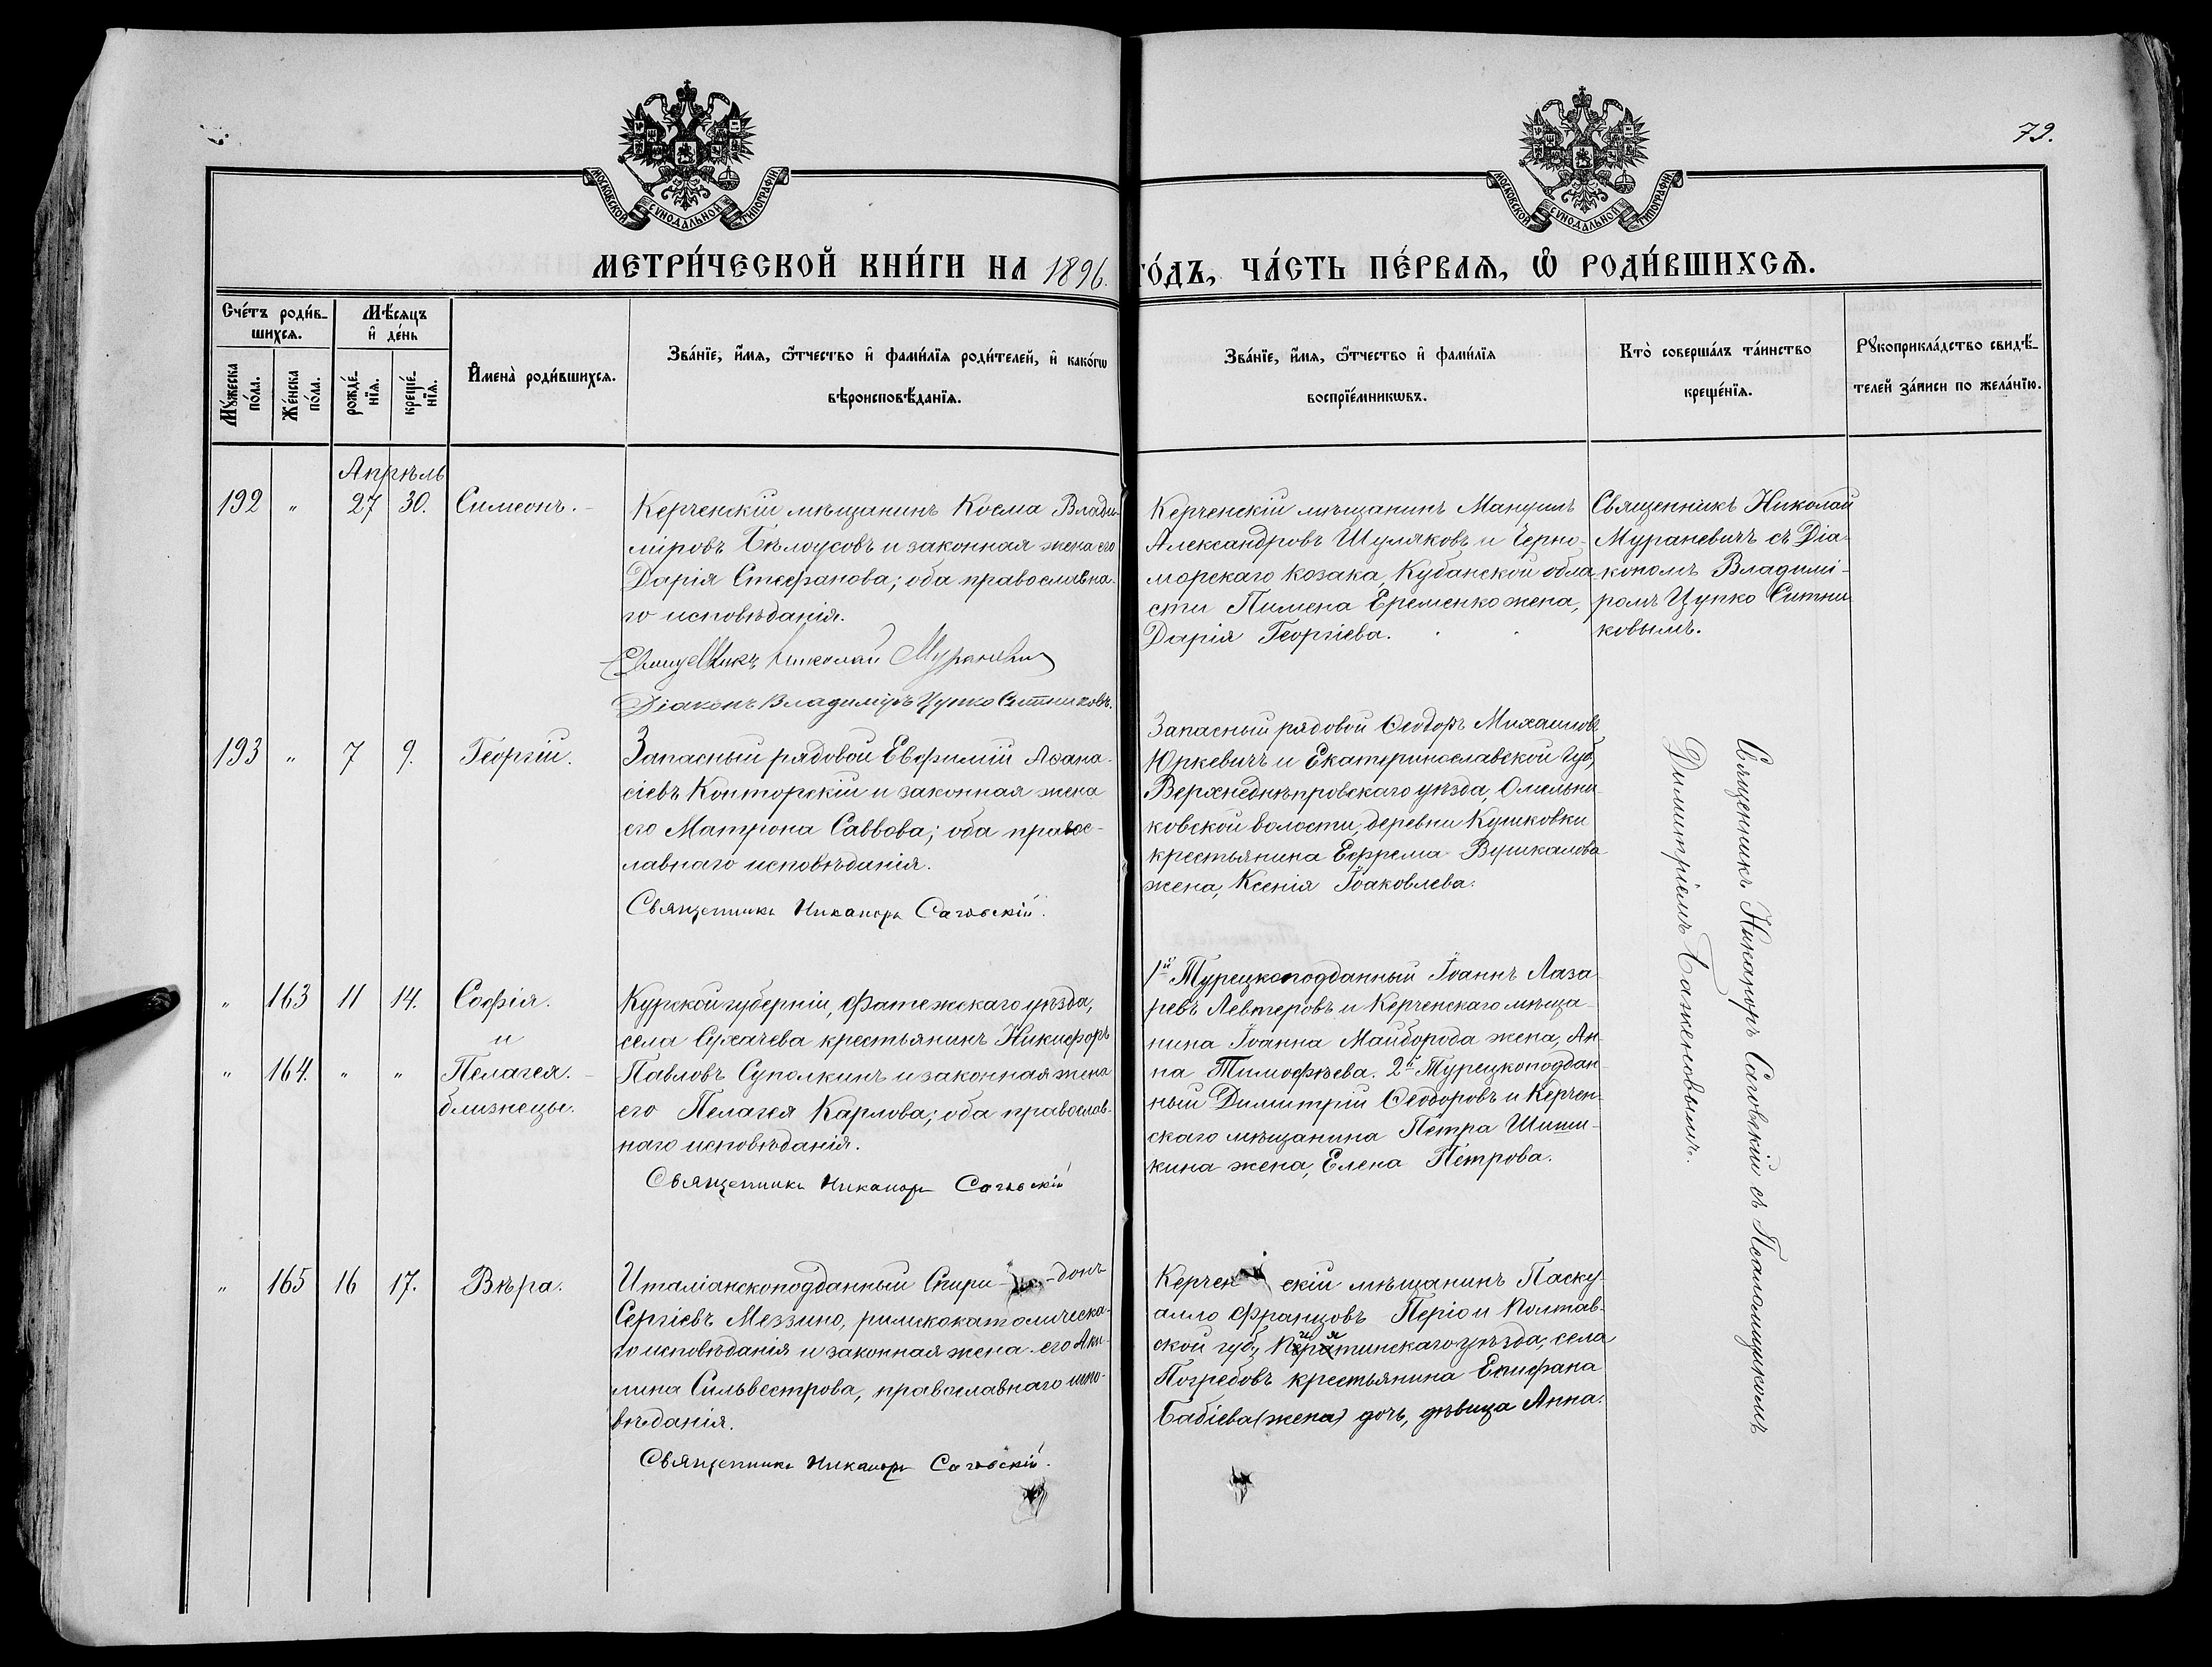 79.
МОСКОВСКОЙ СѴНОДАЛЬНОЙ ТИПОГРАФІИ
МОСКОВСКОЙ СѴНОДАЛЬНОЙ ТИПОГРАФІИ
МЕТРИ́ЧЕСКОЙ КНИ́ГИ НА 1896. ГО́ДЪ, ЧА́СТЬ ПЕ́РВАѦ, Ѽ РОДИ́ВШИХСѦ.
Сче́тъ роди́в-
шихсѧ.
Мꙋ́жеска по́ла.
Же́нска по́ла.
Мѣ́сѧцъ
и҆ де́нь
рожде́-
нїѧ.
креще́-
нїѧ.
И҆мена̀ роди́вшихсѧ.
Зва́нїе, и҆́мѧ, ѻ҆́тчество и҆ фами́лїѧ роди́телей, и҆ како́гѡ
вѣроисповѣ́данїѧ.
Зва́нїе, и҆́мѧ, ѻ҆́тчество и҆ фами́лїѧ
воспрїе́мникѡвъ.
Кто̀ соверша́лъ та́инство
креще́нїѧ.
Рꙋкоприкла́дство свидѣ́-
телей за́писи по жела́нїю.
Апрѣль
192 " 27 30. Симеонъ.
Керченскій мѣщанинъ Косма Влади-
міровъ Бѣлоусовъ и законная жена его
Дарія Стефанова; оба православна-
го исповѣданія.
Священникъ Николай Мураневичъ
Діаконъ Владиміръ Цупко Ситниковъ.
Керченскій мѣщанинъ Мануилъ
Александровъ Шуляковъ и Черно-
морскаго козака, Кубанской обла
сти Пимена Еременко жена,
Дарія Георгіева.
Священникъ Николай
Мураневичъ съ Діа-
кономъ Владимі-
ромъ Цупко Ситни
ковымъ.
193 " 7 9. Георгій.
Запасный рядовой Евфимій Аѳана-
сіевъ Конторскій и законная жена
его Матрона Саввова; оба правос-
лавнаго исповѣданія.
Священникъ Никаноръ Саговскій.
Запасный рядовой Ѳеодоръ Михаиловъ
Юркевичъ и Екатеринославской губ,
Верхнеднѣпровскаго уѣзда, Омельни
ковской волости, деревни Кушковки
крестьянина Ефрема Вушкалова
жена, Ксенія Іаковлева.
" 163 11 14. Софія.
и
" 164. " " Пелагея.
близнецы.
Курской губерніи, Фатежскаго уѣзда,
села Сухачева крестьянинъ Никифоръ
Павловъ Суполкинъ и законная жена
его Пелагея Карлова; оба православ-
наго исповѣданія.
Священникъ Никаноръ Саговскій
1й Турецкоподданный Іоаннъ Лаза
ревъ Левтеровъ и Керченскаго мѣща-
нина Іоанна Майборода жена, Ан-
на Тимофѣева. 2й Турецкоподдан
ный Димитрій Ѳеодоровъ и Керчен-
скаго мѣщанина Петра Шиши-
кина жена, Елена Петрова.
Священникъ Никаноръ Саговскій съ Псаломщикомъ
Димитріемъ Баженовымъ.
" 165 16 17. Вѣра.
Италіанскоподданный Спири-донъ
Сергіевъ Меззино, римскокатолическа-
го исповѣданія и законная жена его Аки-
лина Сильвестрова, православнаго испо-
вѣданія.
Священникъ Никаноръ Саговскій.
Керчен скій мѣщанинъ Паску-
алло Францовъ Періо и Полтав-
ской губ, Пирятинскаго уѣзда, села
Погребовъ крестьянина Епифана
Бабіева (жена) дочь, дѣвица Анна.